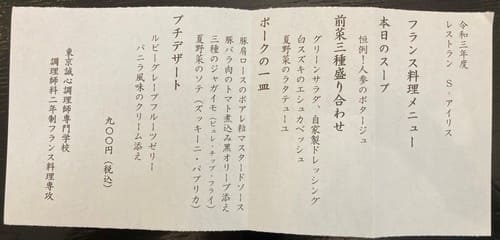 令和三年度
レストラン S・アイリス
フランス料理メニュー
本日のスープ
恒例!人参のポタージュ
前菜三種盛り合わせ
グリーンサラダ、自家製ドレッシング
白スズキのエシュカベッシュ
夏野菜のラタテューユ
ポークの一皿
豚肩ロースのポアレ粒マスタードソース
豚バラ肉のトマト煮込み黒オリーブ添え
三種のジャガイモ(ピュレ・チップ・フライ)
夏野菜のソテ(ズッキーニ・パプリカ)
プチデザート
ルビーグレープフルーツゼリー
バニラ風味のクリーム添え
九〇〇円(税込)
東京誠心調理師専門学校
調理師科二年制フランス料理専攻